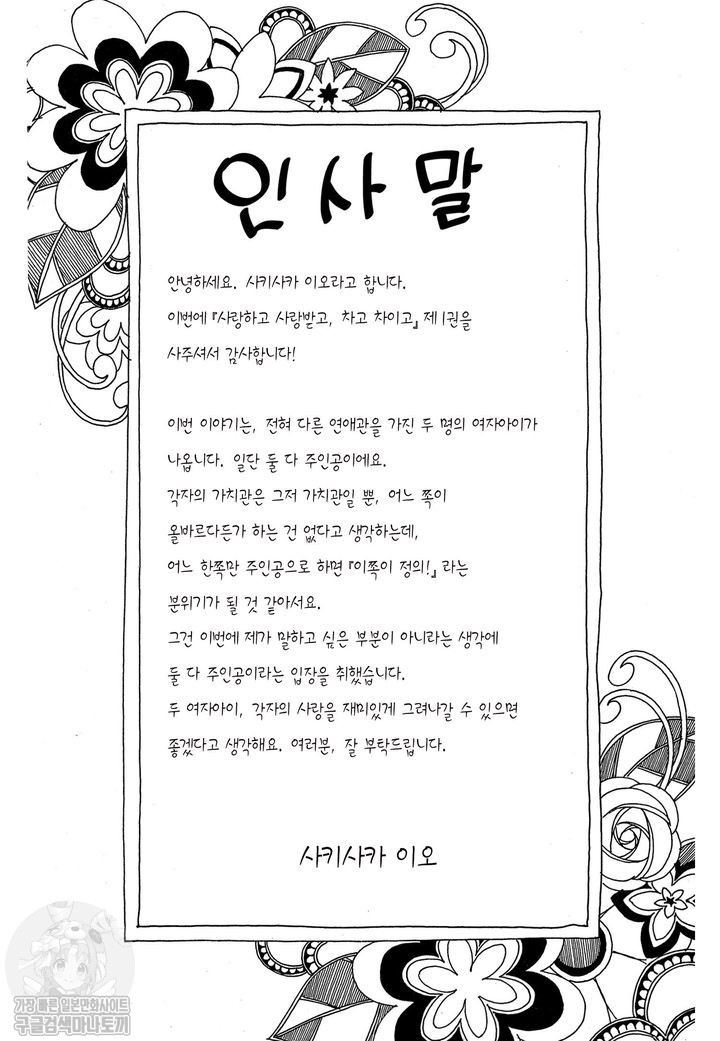 인사말
안녕하세요. 사키사카 이오라고 합니다.
이번에 『사랑하고 사랑받고, 차고 차이고』 제1권을
사주셔서 감사합니다!
이번 이야기는, 전혀 다른 연애관을 가진 두 명의 여자아이가
나옵니다. 일단 둘 다 주인공이에요.
각자의 가치관은 그저 가치관일 뿐, 어느 쪽이
올바르다든가 하는 건 없다고 생각하는데,
어느 한쪽만 주인공으로 하면 『이쪽이 정의!』 라는
분위기가 될 것 같아서요.
그건 이번에 제가 말하고 싶은 부분이 아니라는 생각에
둘 다 주인공이라는 입장을 취했습니다.
두 여자아이, 각자의 사랑을 재미있게 그려나갈 수 있으면
좋겠다고 생각해요. 여러분, 잘 부탁드립니다.
사키사카 이오
가장 빠른 일본만화사이트
구글검색마나토끼